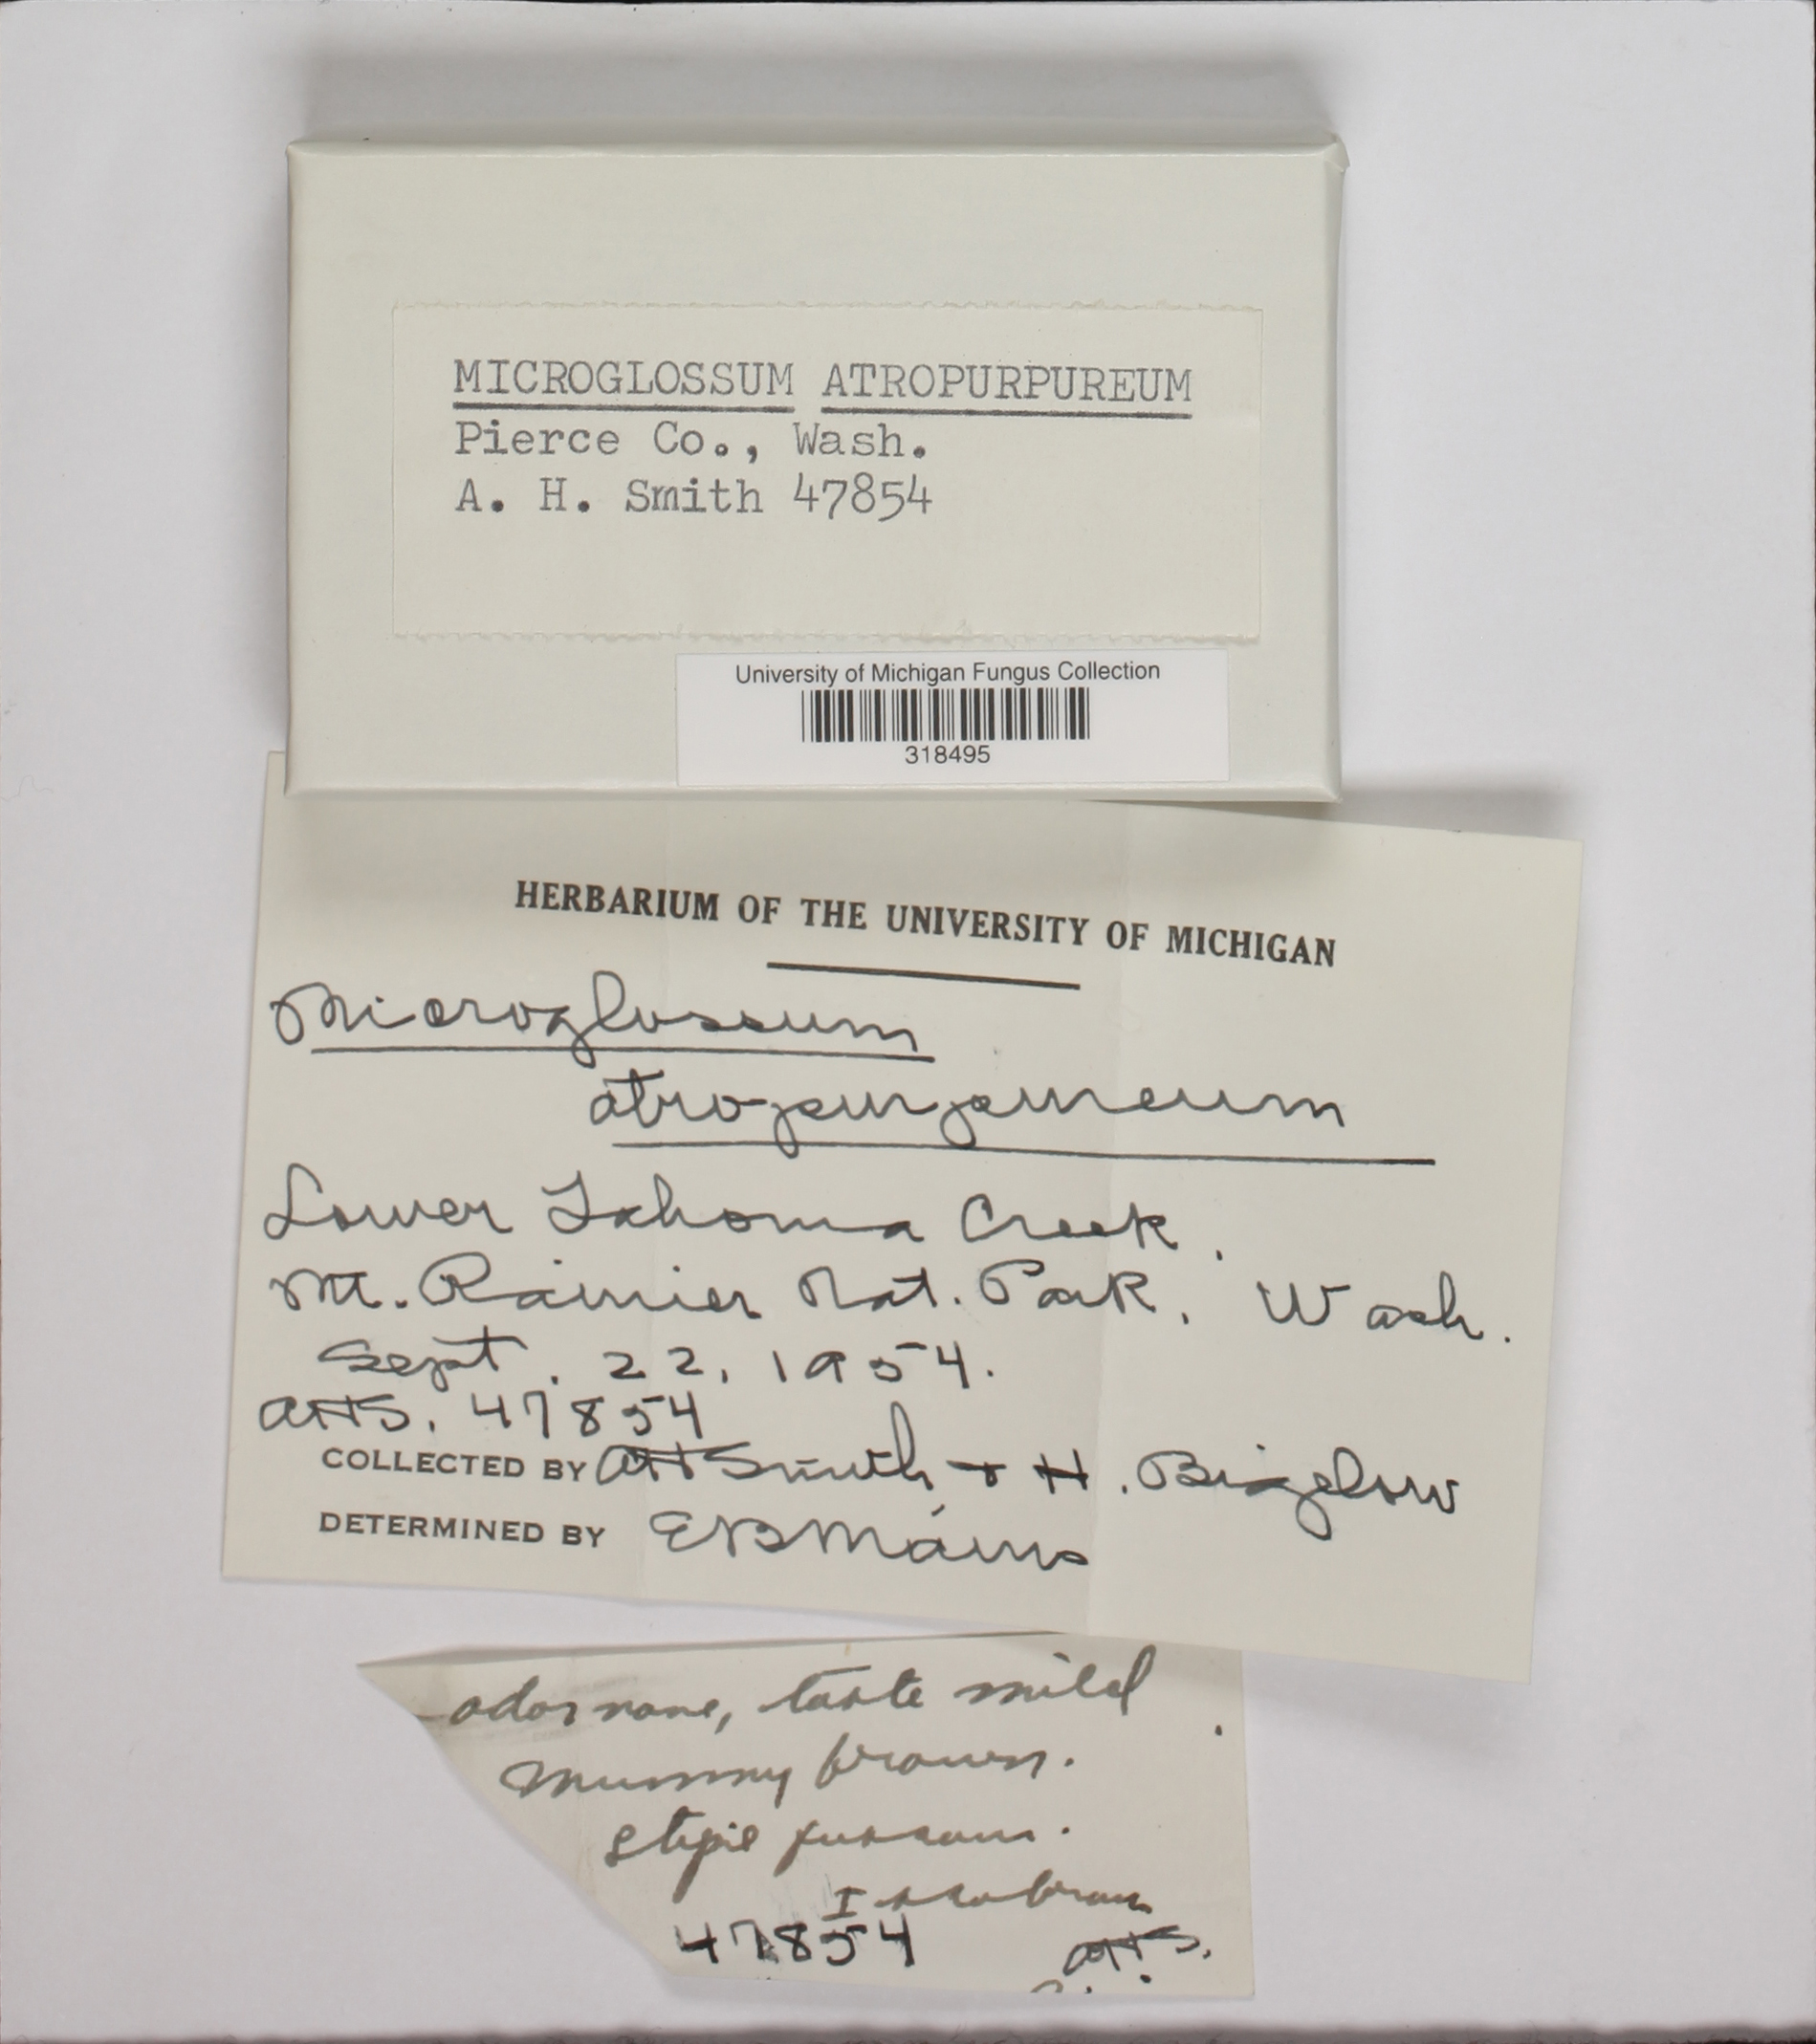 MICROGLOSSUM ATROPURPUREUM
Pierce Co., Wash.
A. H. Smith 47854
University of Michigan Fungus Collection
318495
HERBARIUM OF THE UNIVERSITY OF MICHIGAN
Microglossum
atropurpureum
Lower Tahoma Creek,
Mt. Rainier Nat. Park, Wash.
Sept. 22, 1954.
AHS. 47854
COLLECTED BY AHSmith + H. Bigelow
DETERMINED BY EBMains
odor none, taste mild
mummy brown.
stipe
47854
AHS.